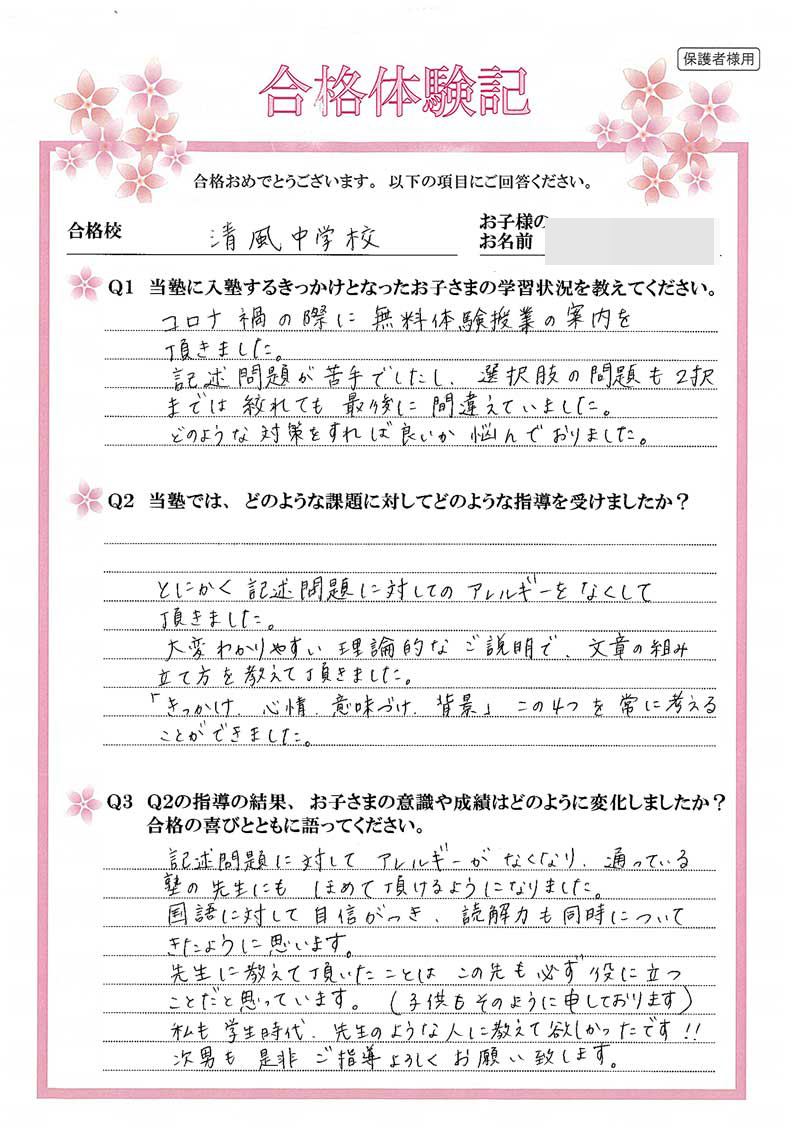 保護者様用
合格体験記
合格おめでとうございます。以下の項目にご回答ください。
合格校 清風中学校
お子様の
お名前
Q1 当塾に入塾するきっかけとなったお子さまの学習状況を教えてください。
コロナ禍の際に無料体験授業の案内を
頂きました。
記述問題が苦手でしたし、選択肢の問題も2択
までは絞れても最後に間違えていました。
どのような対策をすれば良いか悩んでおりました。
Q2 当塾では、どのような課題に対してどのような指導を受けましたか？
とにかく記述問題に対してのアレルギーをなくして
頂きました。
大変わかりやすい理論的なご説明で、文章の組み
立て方を教えて頂きました。
「きっかけ、心情、意味づけ、背景」この4つを常に考える
ことができました。
Q3 Q2の指導の結果、お子さまの意識や成績はどのように変化しましたか？
合格の喜びとともに語ってください。
記述問題に対してアレルギーがなくなり、通っている
塾の先生にもほめて頂けるようになりました。
国語に対して自信がつき、読解力も同時について
きたように思います。
先生に教えて頂いたことはこの先も必ず役に立つ
ことだと思っています。（子供もそのように申しております）
私も学生時代、先生のような人に教えて欲しかったです!!
次男も是非ご指導よろしくお願い致します。